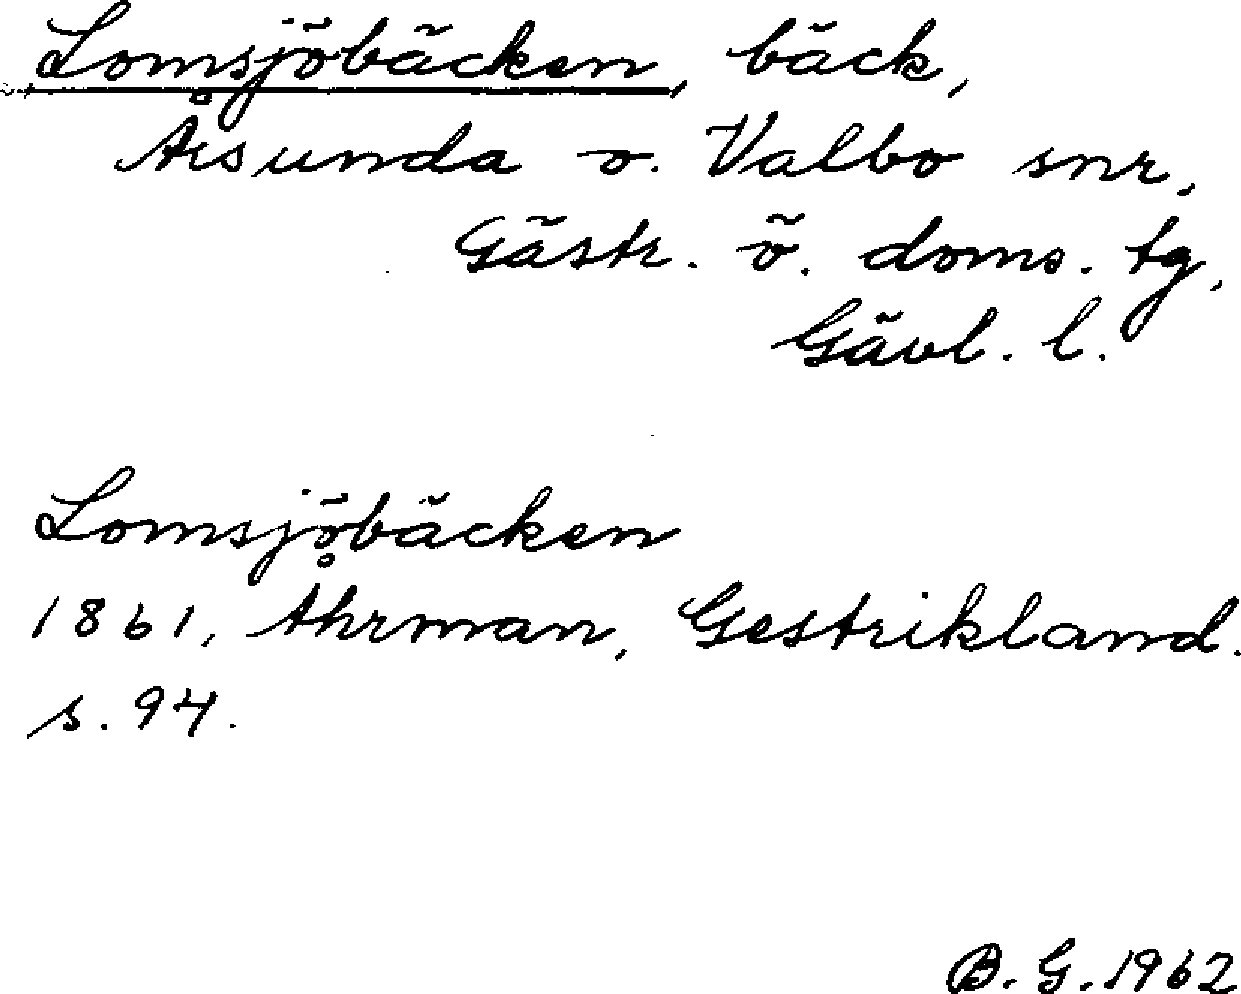 Lomsjöbäcken, bäck,
Årsunda o. Valbo snr,
Gästr. ö. doms. tg,
Gävl. l.
Lomsjöbäcken
1861, Åhrman, Gestrikland.
s. 94.
B. G. 1962